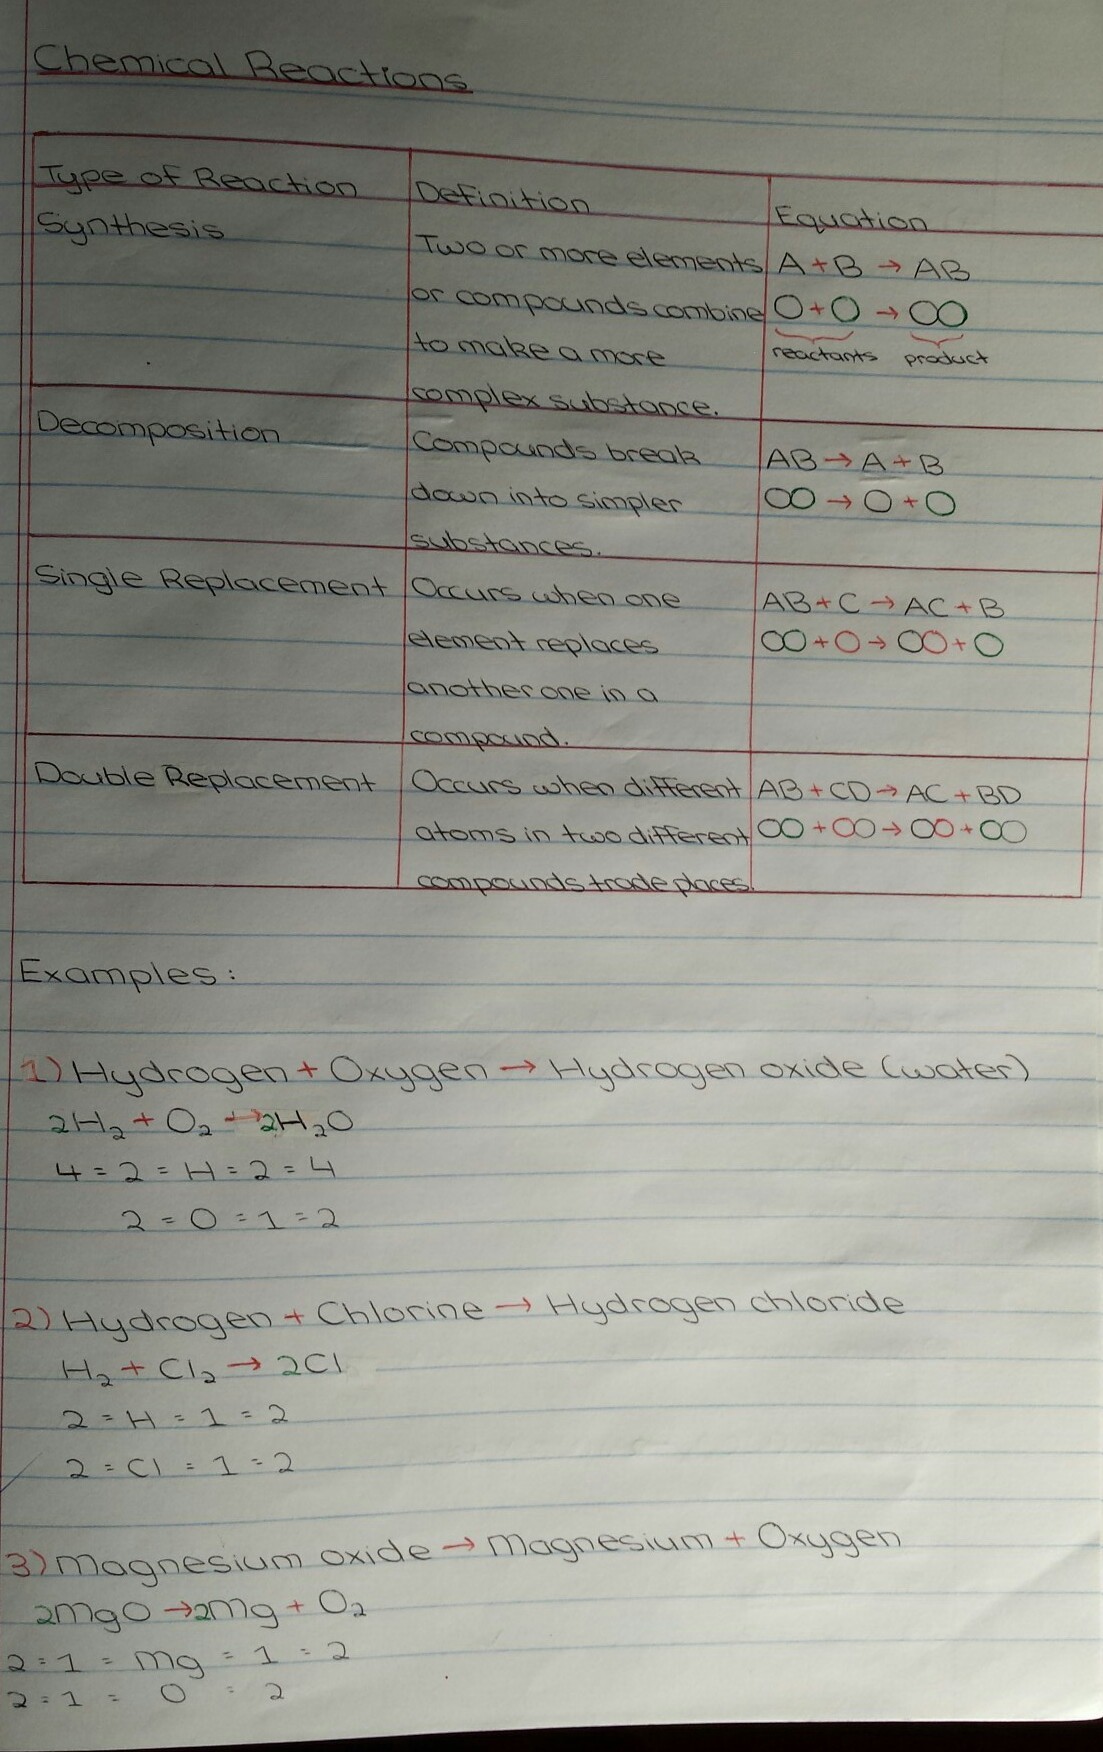 Chemical Reactions
Type of Reaction
Definition
Equation
Synthesis
Two or more elements
or compounds combine
to make a more
complex substance.
A + B → AB
O + O → OO
reactants product
Decomposition
Compounds break
down into simpler
substances.
AB → A + B
OO → O + O
Single Replacement
Occurs when one
element replaces
another one in a
compound.
AB + C → AC + B
OO + O → OO + O
Double Replacement
Occurs when different
atoms in two different
compounds trade places.
AB + CD → AC + BD
OO + OO → OO + OO
Examples:
1) Hydrogen + Oxygen → Hydrogen oxide (water)
2H₂ + O₂ → 2H₂O
4 = 2 = H = 2 = 4
2 = O = 1 = 2
2) Hydrogen + Chlorine → Hydrogen chloride
H₂ + Cl₂ → 2Cl
2 = H = 1 = 2
2 = Cl = 1 = 2
3) Magnesium oxide → Magnesium + Oxygen
2MgO → 2Mg + O₂
2 = 1 = Mg = 1 = 2
2 = 1 = O = 2